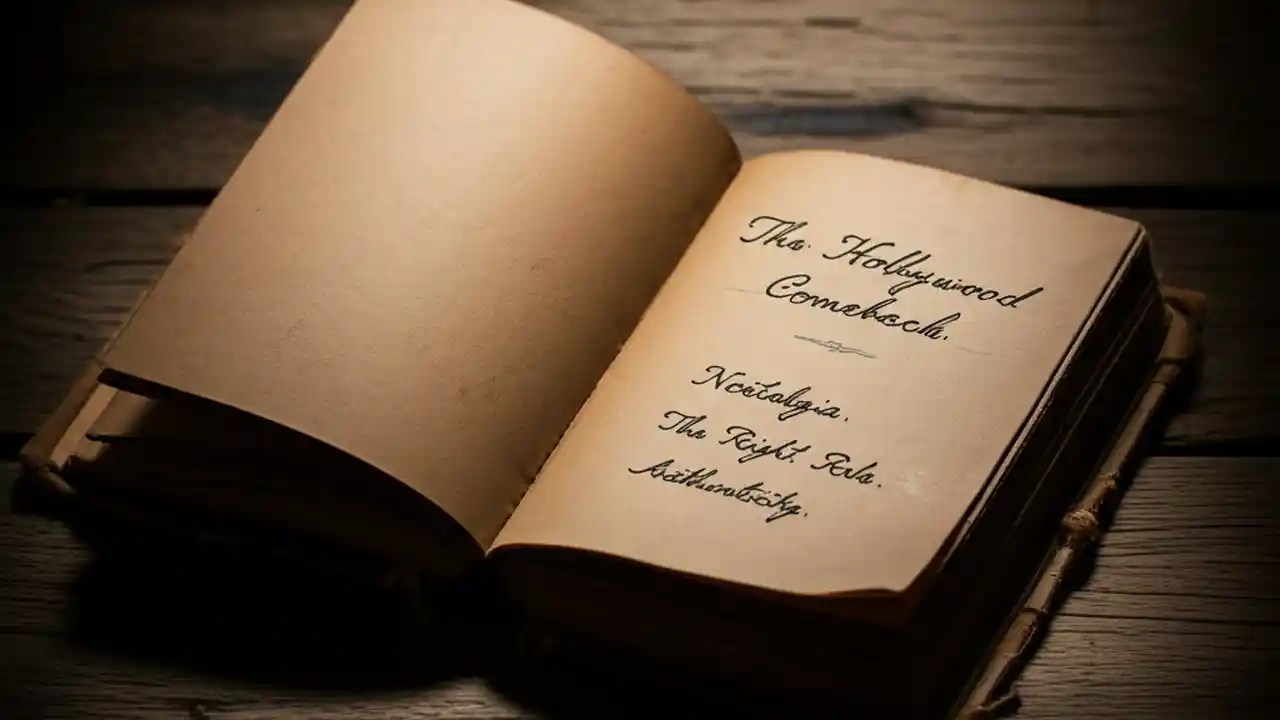 The Hollywood
Comeback.
Nostalgia.
The Right Role.
Authenticity.